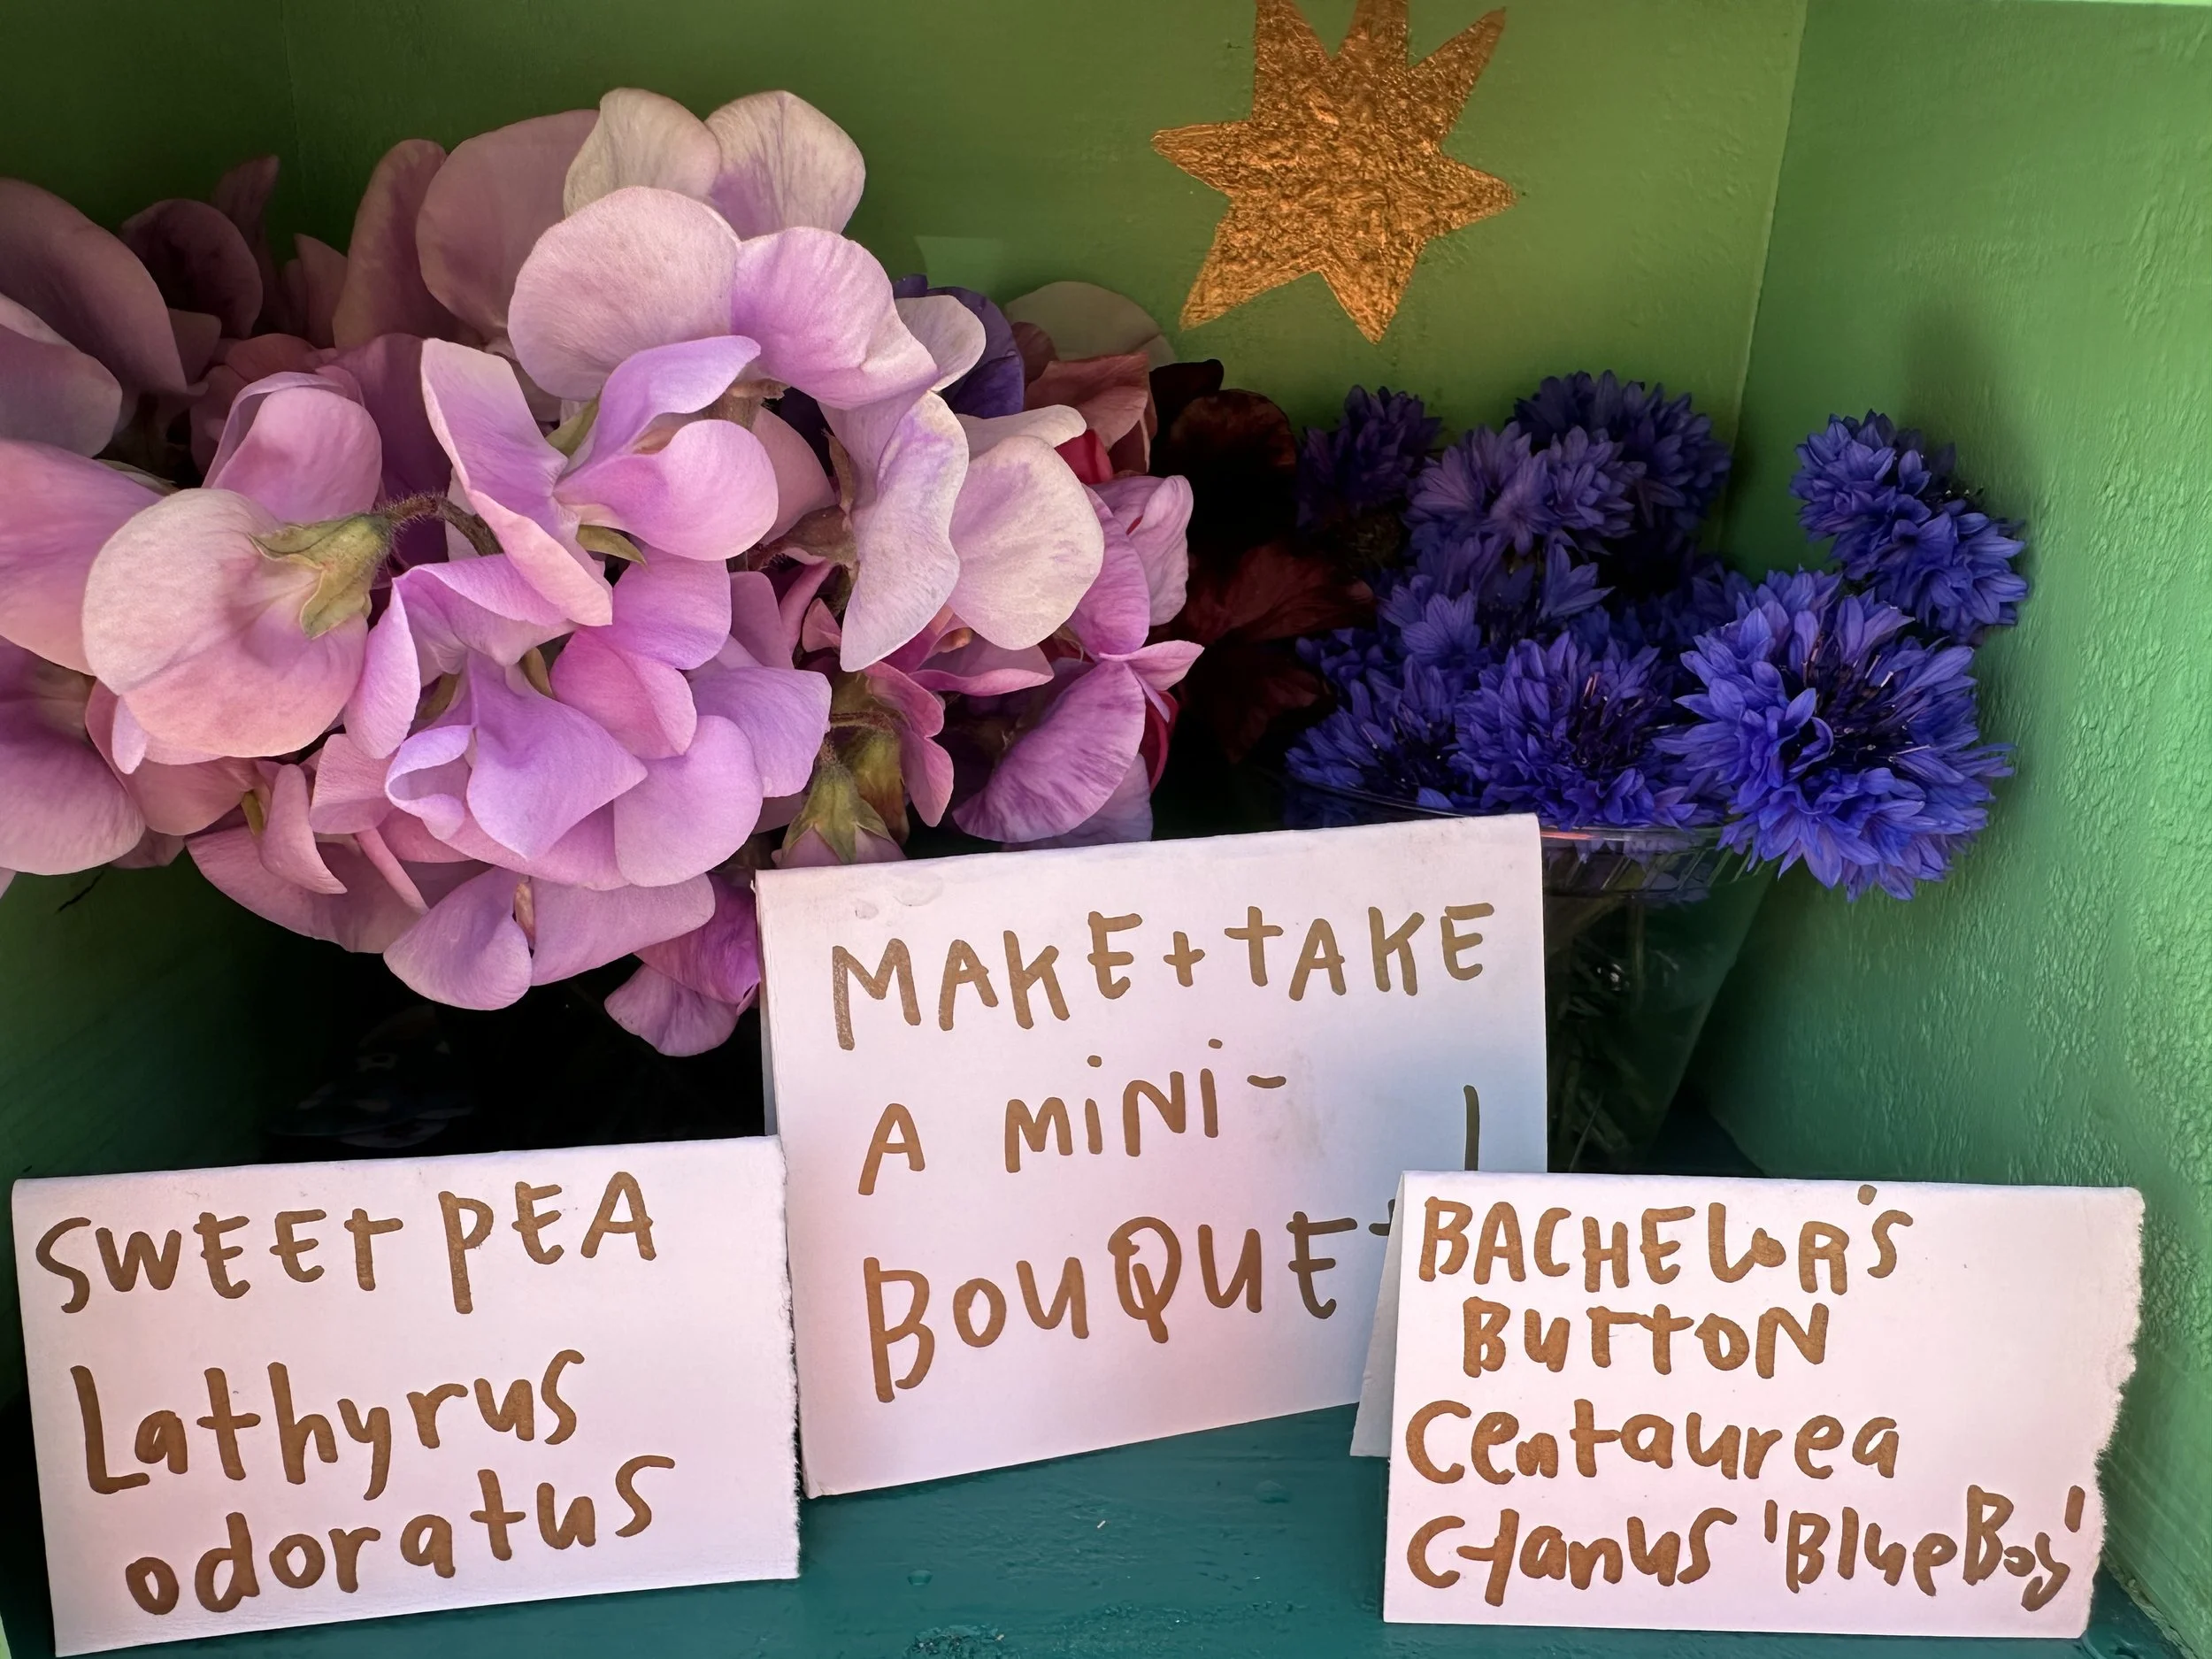 SWEET PEA
Lathyrus
odoratus
MAKE + TAKE
A MiNi-
BOUQUET
BACHELOR'S
BUTTON
Centaurea
Cyanus 'Blue Boy'